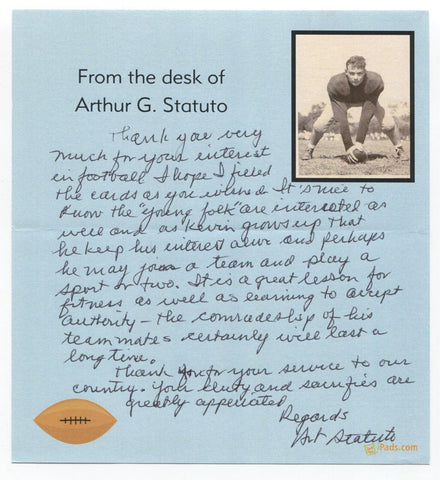 From the desk of
Arthur G. Statuto
Thank you very
much for your interest
in football I hope I filled
the cards as you wished. It's nice to
know the "young folk" are interested as
well and as Kevin grows up that
he keep his interest alive and perhaps
he may join a team and play a
sport or two. It is a great lesson for
fitness as well as learning to accept
authority - the comradeship of his
teammates certainly will last a
long time.
Thank you for your service to our
country. Your duty and sacrifies are
greatly appeciated
Regards
Art Statuto
iPads.com